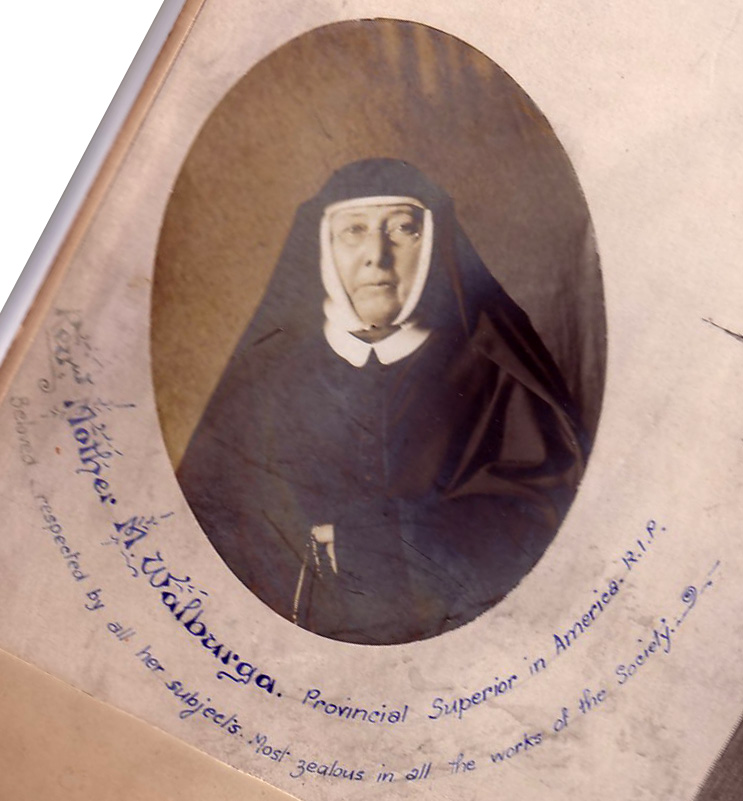 Rev. Mother M. Walburga. Provincial Superior in America. R.I.P.
Beloved & respected by all her subjects. Most zealous in all the works of the Society.